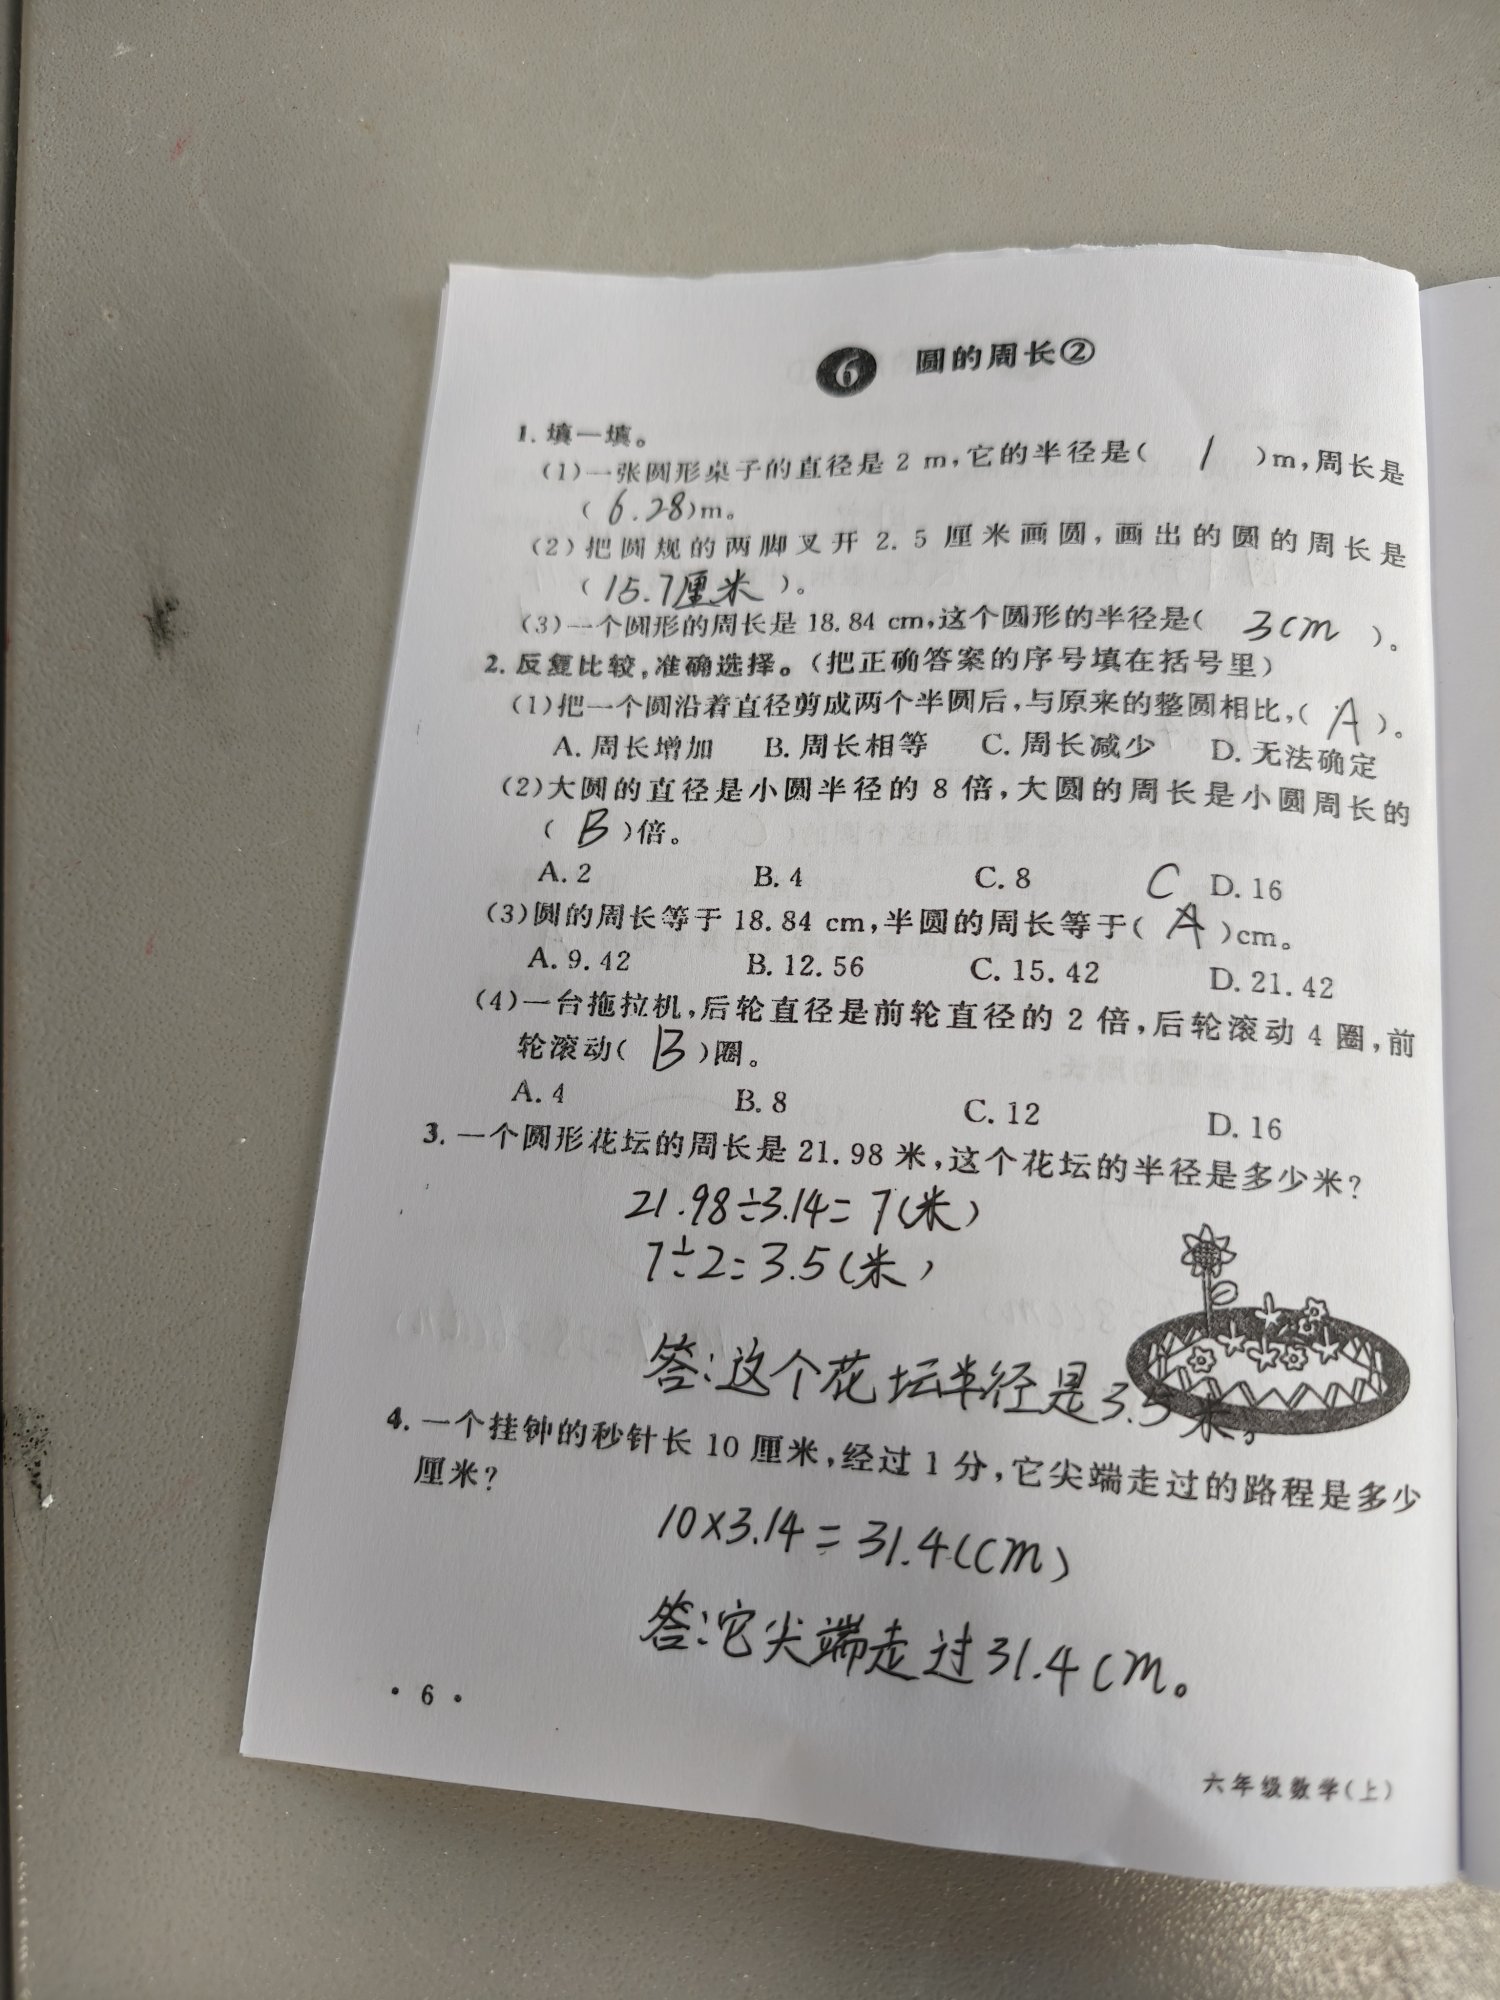 6 圆的周长②
1. 填一填。
(1)一张圆形桌子的直径是 2 m,它的半径是( 1 )m,周长是
( 6.28 )m。
(2)把圆规的两脚叉开 2.5 厘米画圆,画出的圆的周长是
( 15.7厘米 )。
(3)一个圆形的周长是 18.84 cm,这个圆形的半径是( 3cm )。
2. 反复比较,准确选择。(把正确答案的序号填在括号里)
(1)把一个圆沿着直径剪成两个半圆后,与原来的整圆相比,( A )。
A. 周长增加 B. 周长相等 C. 周长减少 D. 无法确定
(2)大圆的直径是小圆半径的 8 倍,大圆的周长是小圆周长的
( B )倍。
A. 2 B. 4 C. 8 D. 16
C
(3)圆的周长等于 18.84 cm,半圆的周长等于( A )cm。
A. 9.42 B. 12.56 C. 15.42 D. 21.42
(4)一台拖拉机,后轮直径是前轮直径的 2 倍,后轮滚动 4 圈,前
轮滚动( B )圈。
A. 4 B. 8 C. 12 D. 16
3. 一个圆形花坛的周长是 21.98 米,这个花坛的半径是多少米?
21.98÷3.14=7(米)
7÷2=3.5(米)
答:这个花坛半径是3.5米。
4. 一个挂钟的秒针长 10 厘米,经过 1 分,它尖端走过的路程是多少
厘米?
10×3.14=31.4(cm)
答:它尖端走过31.4cm。
· 6 ·
六年级数学(上)